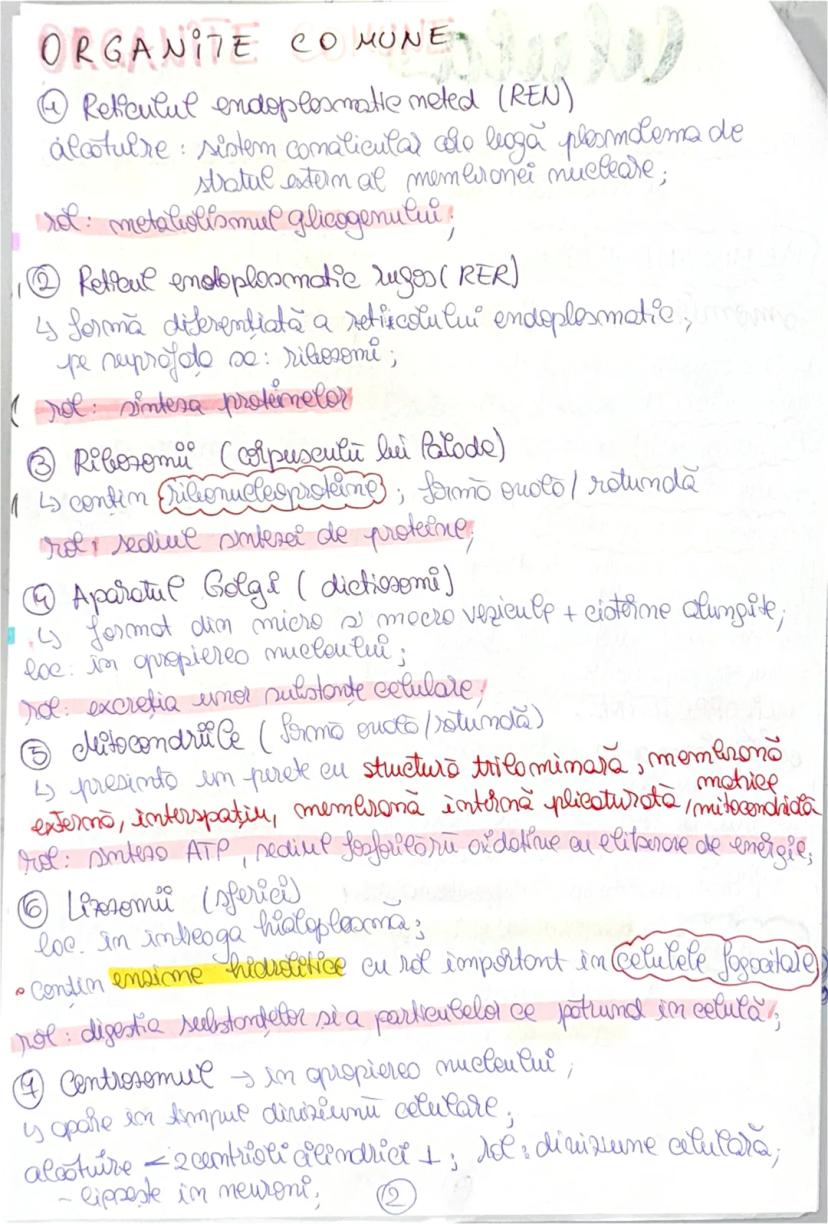 ORGANITE COMUNE
① Reticulul endoplasmatic neted (REN)
alcătuire : sistem canalicular care leagă plasmalema de
stratul extern al membranei nucleare;
rol: metabolismul glicogenului;
② Reticul endoplasmatic rugos (RER)
↳ formă diferențiată a reticolului endoplasmatic;
pe suprafața sa: ribozomi;
rol: sinteza proteinelor
③ Ribozomii (corpusculii lui Palade)
↳ conțin ribonucleoproteine; formă ovală / rotundă
rol: sediul sintezei de proteine;
④ Aparatul Golgi ( dictiozomi)
↳ format din micro și macro vezicule + cisterne alungite;
loc: în apropierea nucleului;
rol: excreția unor substanțe celulare;
⑤ Mitocondriile ( formă ovală / rotundă)
↳ prezintă un perete cu stuctură trilaminară; membrană
externă, interspațiu, membrană internă plicaturată / matrice mitocondrială
rol: sinteza ATP, sediul fosforilării oxidative cu eliberare de energie;
⑥ Lizozomii (sferici)
loc. în întreaga hialoplasmă;
• conțin enzime hidrolitice cu rol important în celulele fagocitare
rol: digestia substanțelor și a particulelor ce pătrund în celulă;
⑦ Centrozomul → în apropierea nucleului;
↳ apare în timpul diviziunii celulare;
alcătuire < 2 centrioli cilindrici ⊥; rol: diviziune celulară;
- lipsește în neuroni;
②